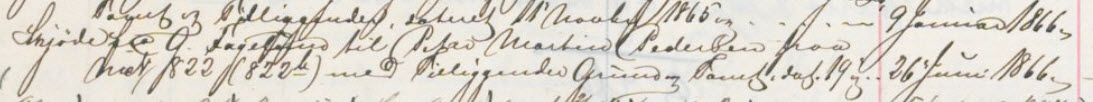 Tomt og Tilliggender, dateret 11 Novbr 1865 9 Januar 1866
Skjøde fra G. Fagerlund til Peder Martin Pedersen paa
Matr 822 (822a) med Tilliggender Grund og Tomt, dat. 19 26 Juni 1866